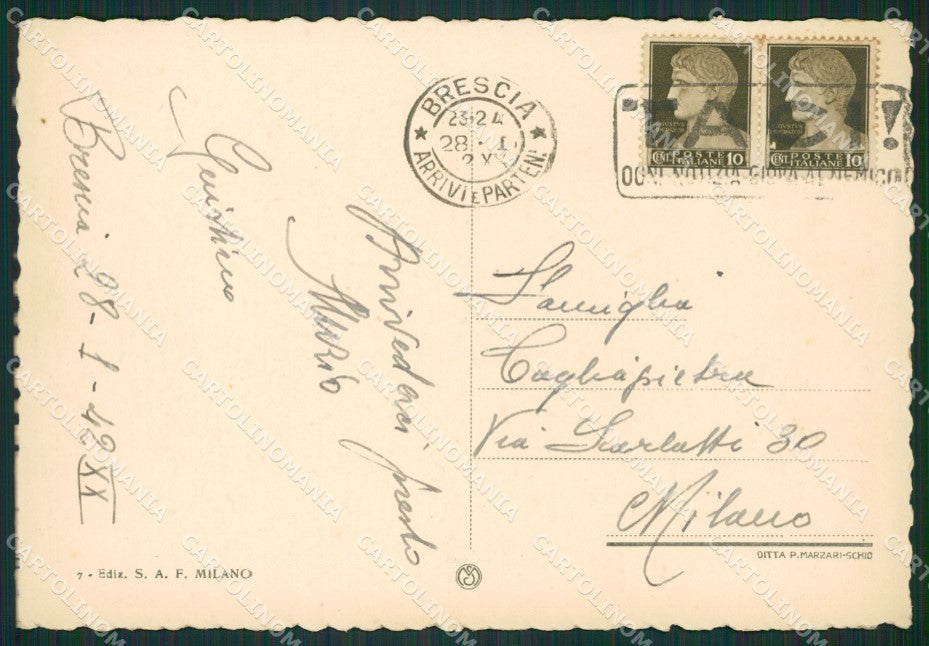 BRESCIA
23-24
28 · I
ARRIVI E PARTENZE
OGNI NOTIZIA GIOVA AL NEMICO
POSTE ITALIANE
CENT. 10
POSTE ITALIANE
CENT. 10
Brescia 28-1-42 XX
Arrivederci presto
Mario
Famiglia
Tagliapietra
Via Scarlatti 30
Milano
DITTA P. MARZARI-SCHIO
7 - Ediz. S. A. F. MILANO
CARTOLINOMANIA